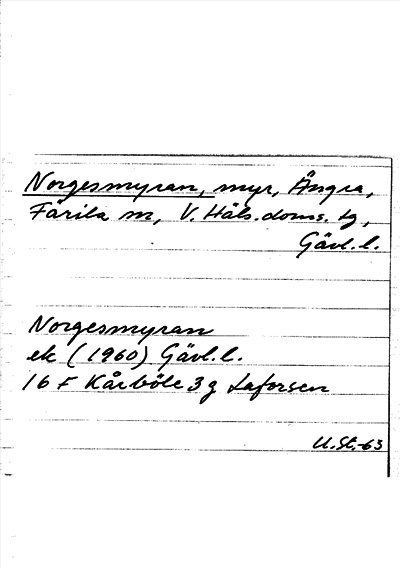 Norgesmyran, myr, Ängra,
Färila sn, V. Häls. doms. tg,
Gävl. l.
Norgesmyran
ek (1960) Gävl. l.
16 F Kårböle 3 g Laforsen
U.St.-63